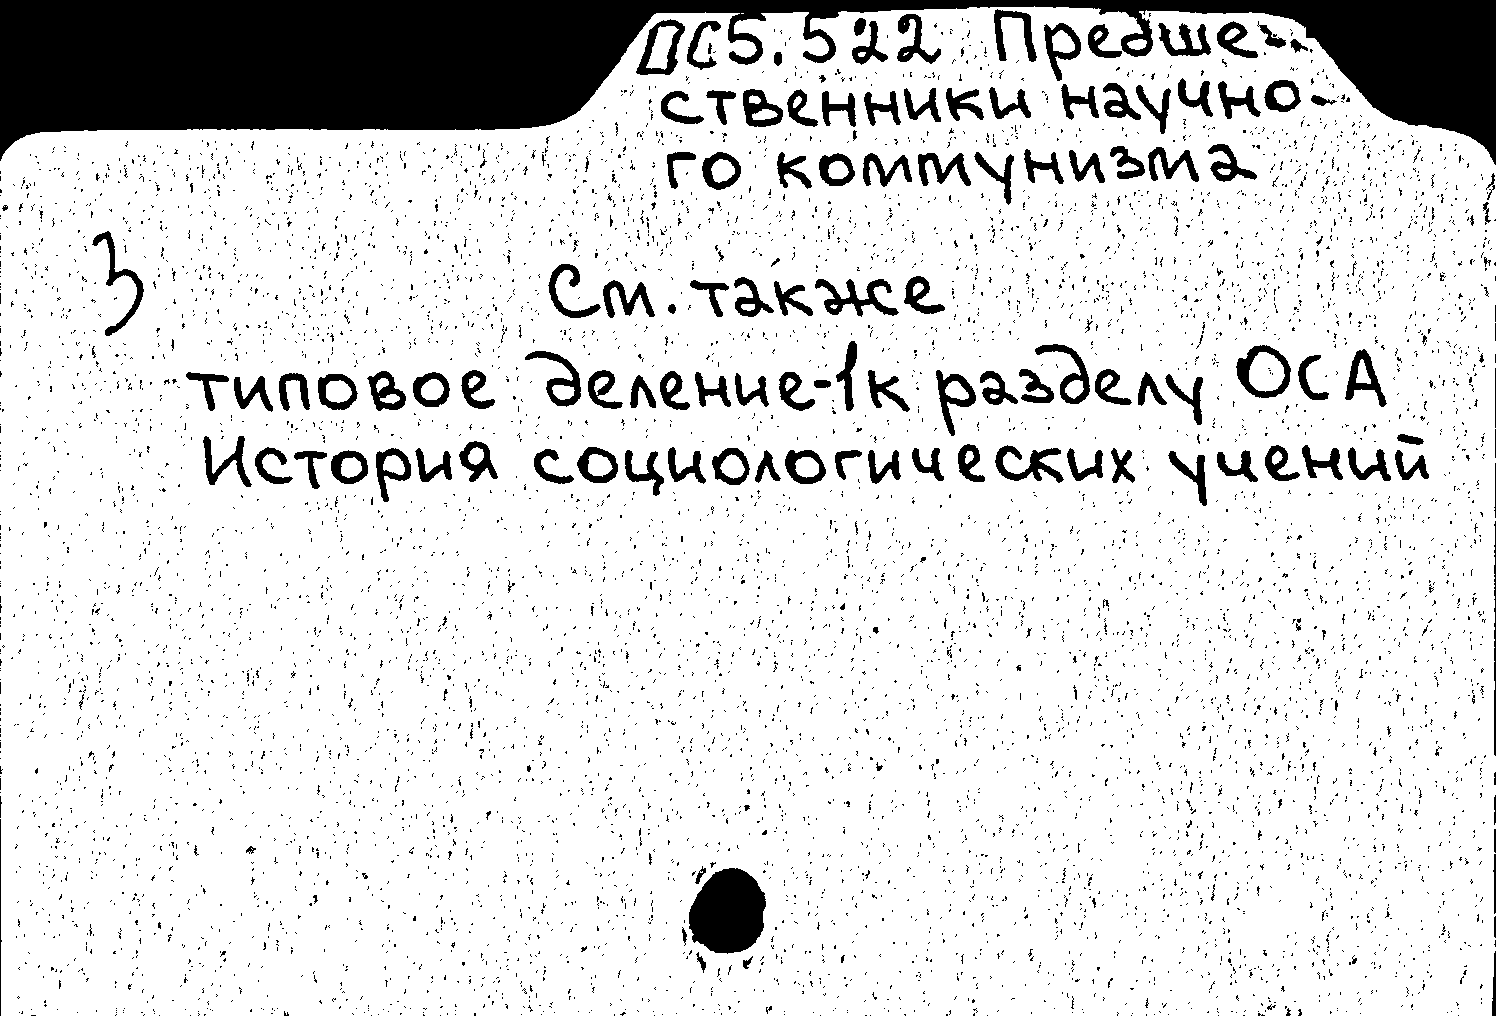 ОС5.522 Предше-
ственники научно-
го коммунизма
3
См. также
типовое деление-1к разделу ОСА
История социологических учений